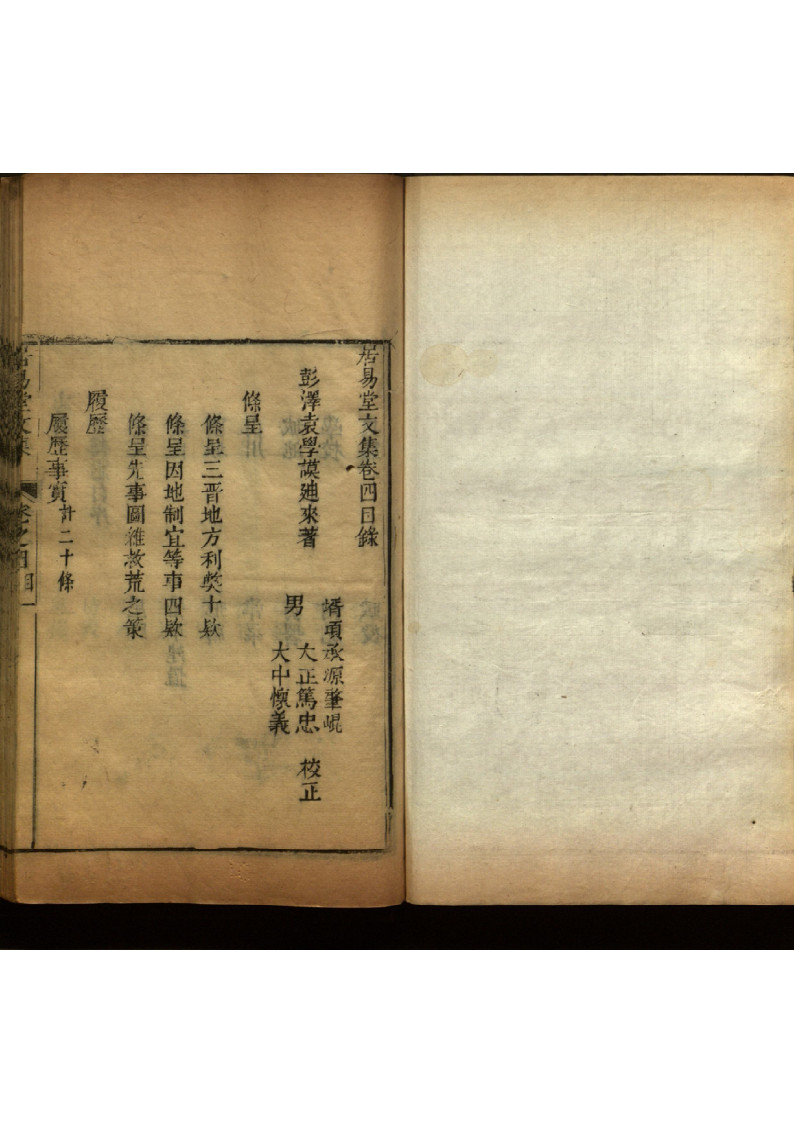 居易堂文集卷四目錄
彭澤袁學謨廸來著
壻項承源肇崐
男
大正篤忠
大中懷義
校正
條呈
條呈三晋地方利獘十欵
條呈因地制宜等事四欵
條呈先事圖維救荒之策
履歷
履歷事實計二十條
居易堂文集
卷之四
目一